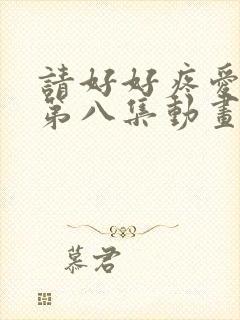 請好好疼愛
第八集動畫
慕君